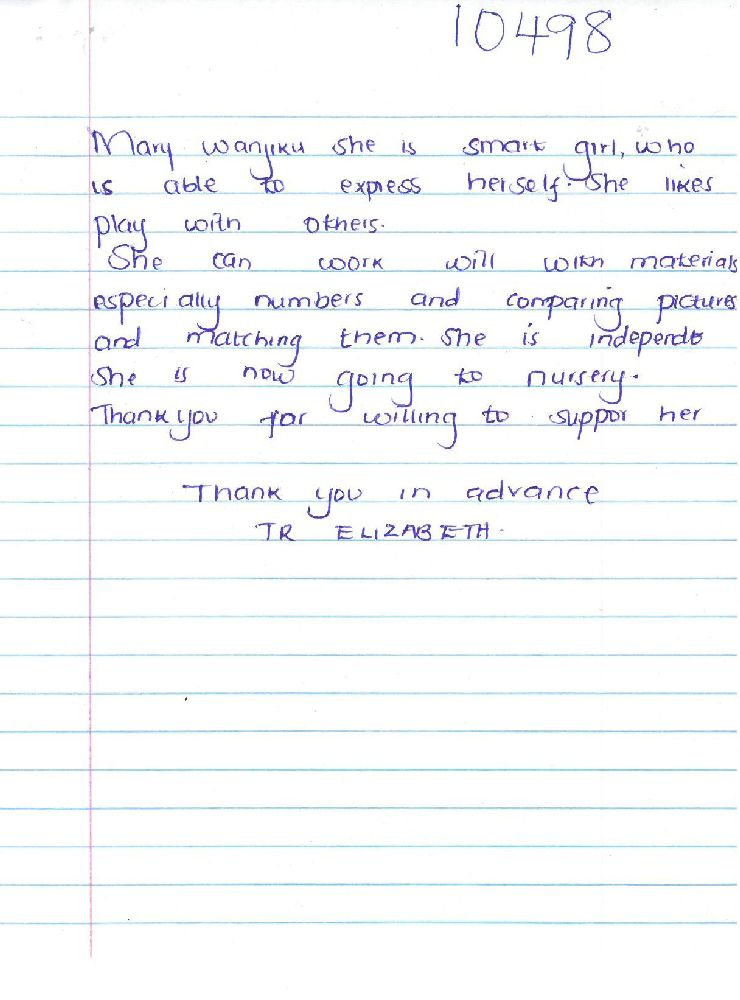 10498
Mary wanjiku she is smart girl, who
is able to express herself. She likes
play with others.
She can work will with materials
especially numbers and comparing pictures
and matching them. She is independt
She is now going to nursery.
Thank you for willing to suppor her
Thank you in advance
TR ELIZABETH.